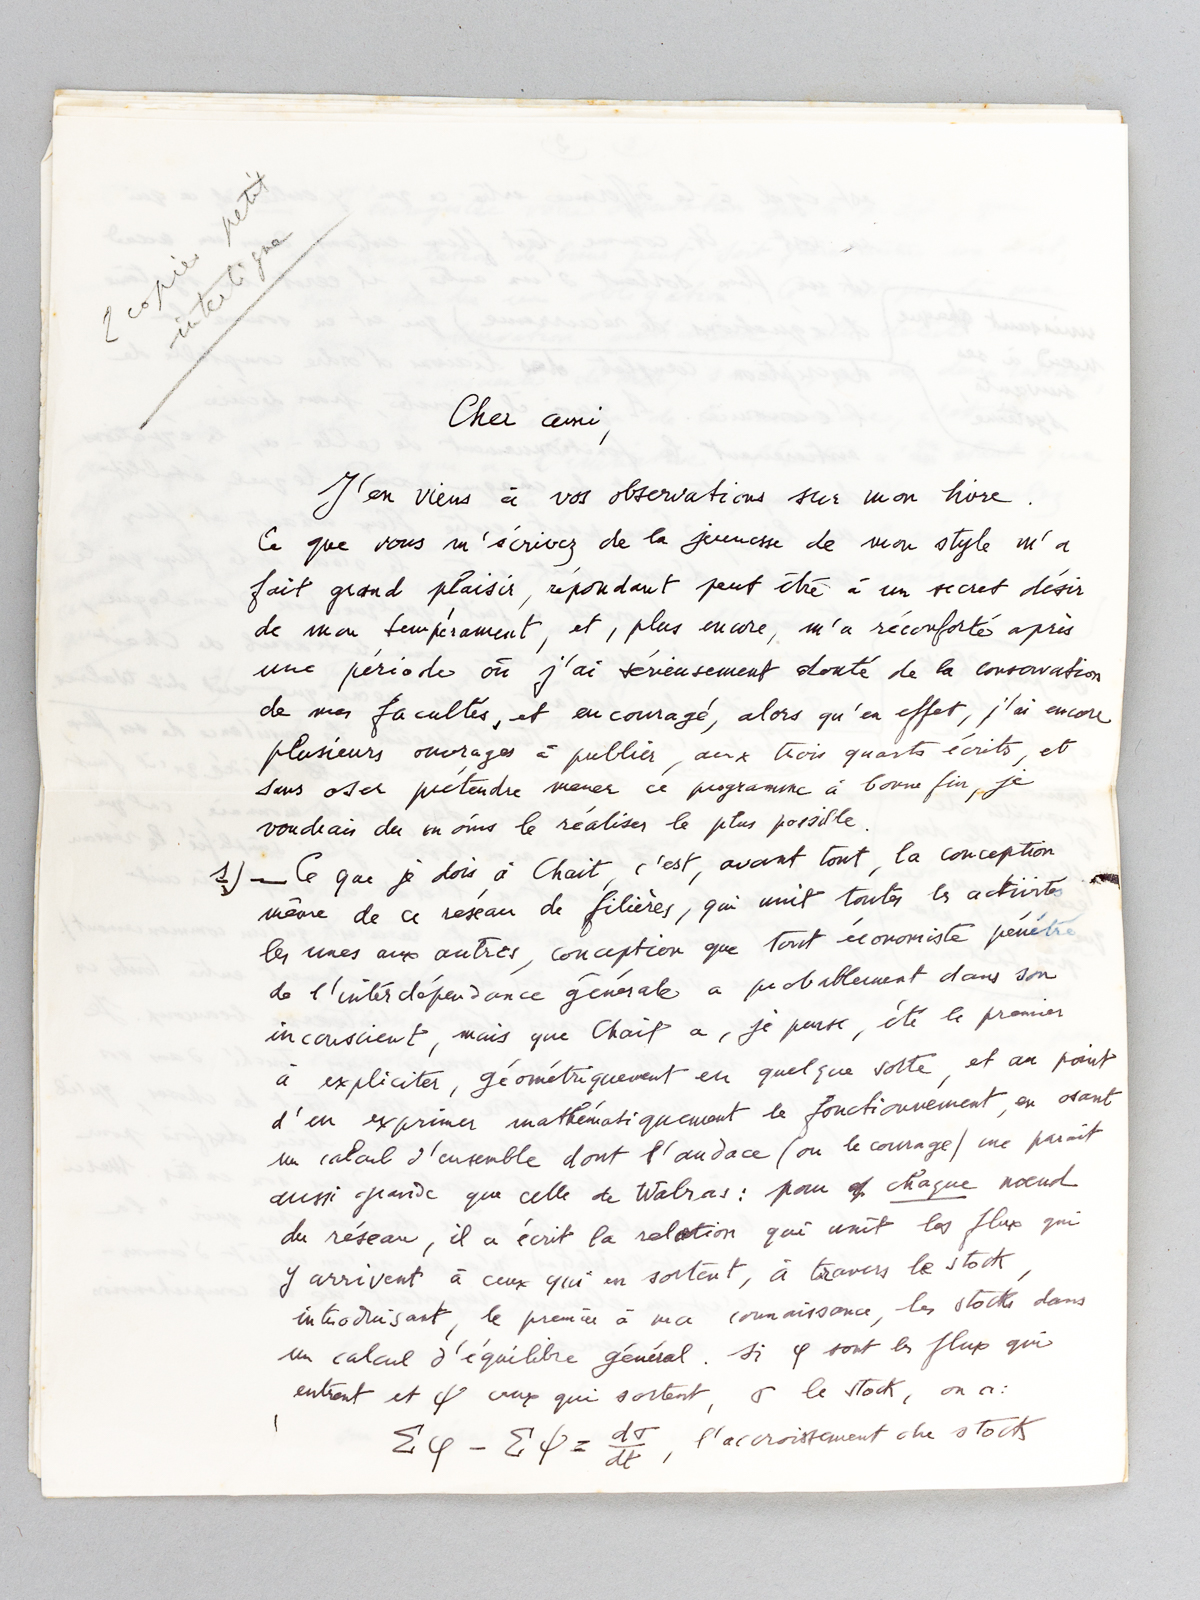 2 copies petit
interligne
Cher ami,
J'en viens à vos observations sur mon livre.
Ce que vous m'écrivez de la jeunesse de mon style m'a
fait grand plaisir, répondant peut être à un secret désir
de mon tempérament, et, plus encore, m'a réconforté après
une période où j'ai sérieusement douté de la conservation
de mes facultés, et encouragé, alors qu'en effet, j'ai encore
plusieurs ouvrages à publier, aux trois quarts écrits, et
sans oser prétendre mener ce programme à bonne fin, je
voudrais du moins le réaliser le plus possible.
1) — Ce que je dois à Chait, c'est, avant tout, la conception
même de ce réseau de filières, qui unit toutes les activités
les unes aux autres, conception que tout économiste pénétré
de l'interdépendance générale a probablement dans son
inconscient, mais que Chait a, je pense, été le premier
à expliciter, géométriquement en quelque sorte, et au point
d'en exprimer mathématiquement le fonctionnement, en osant
un calcul d'ensemble dont l'audace (ou le courage) me paraît
aussi grande que celle de Walras: pour chaque nœud
du réseau, il a écrit la relation qui unit les flux qui
y arrivent à ceux qui en sortent, à travers le stock,
introduisant, le premier à ma connaissance, les stocks dans
un calcul d'équilibre général. Si φ sont les flux qui
entrent et ψ ceux qui sortent, σ le stock, on a:
Σφ – Σψ = dσ/dt, l'accroissement des stocks